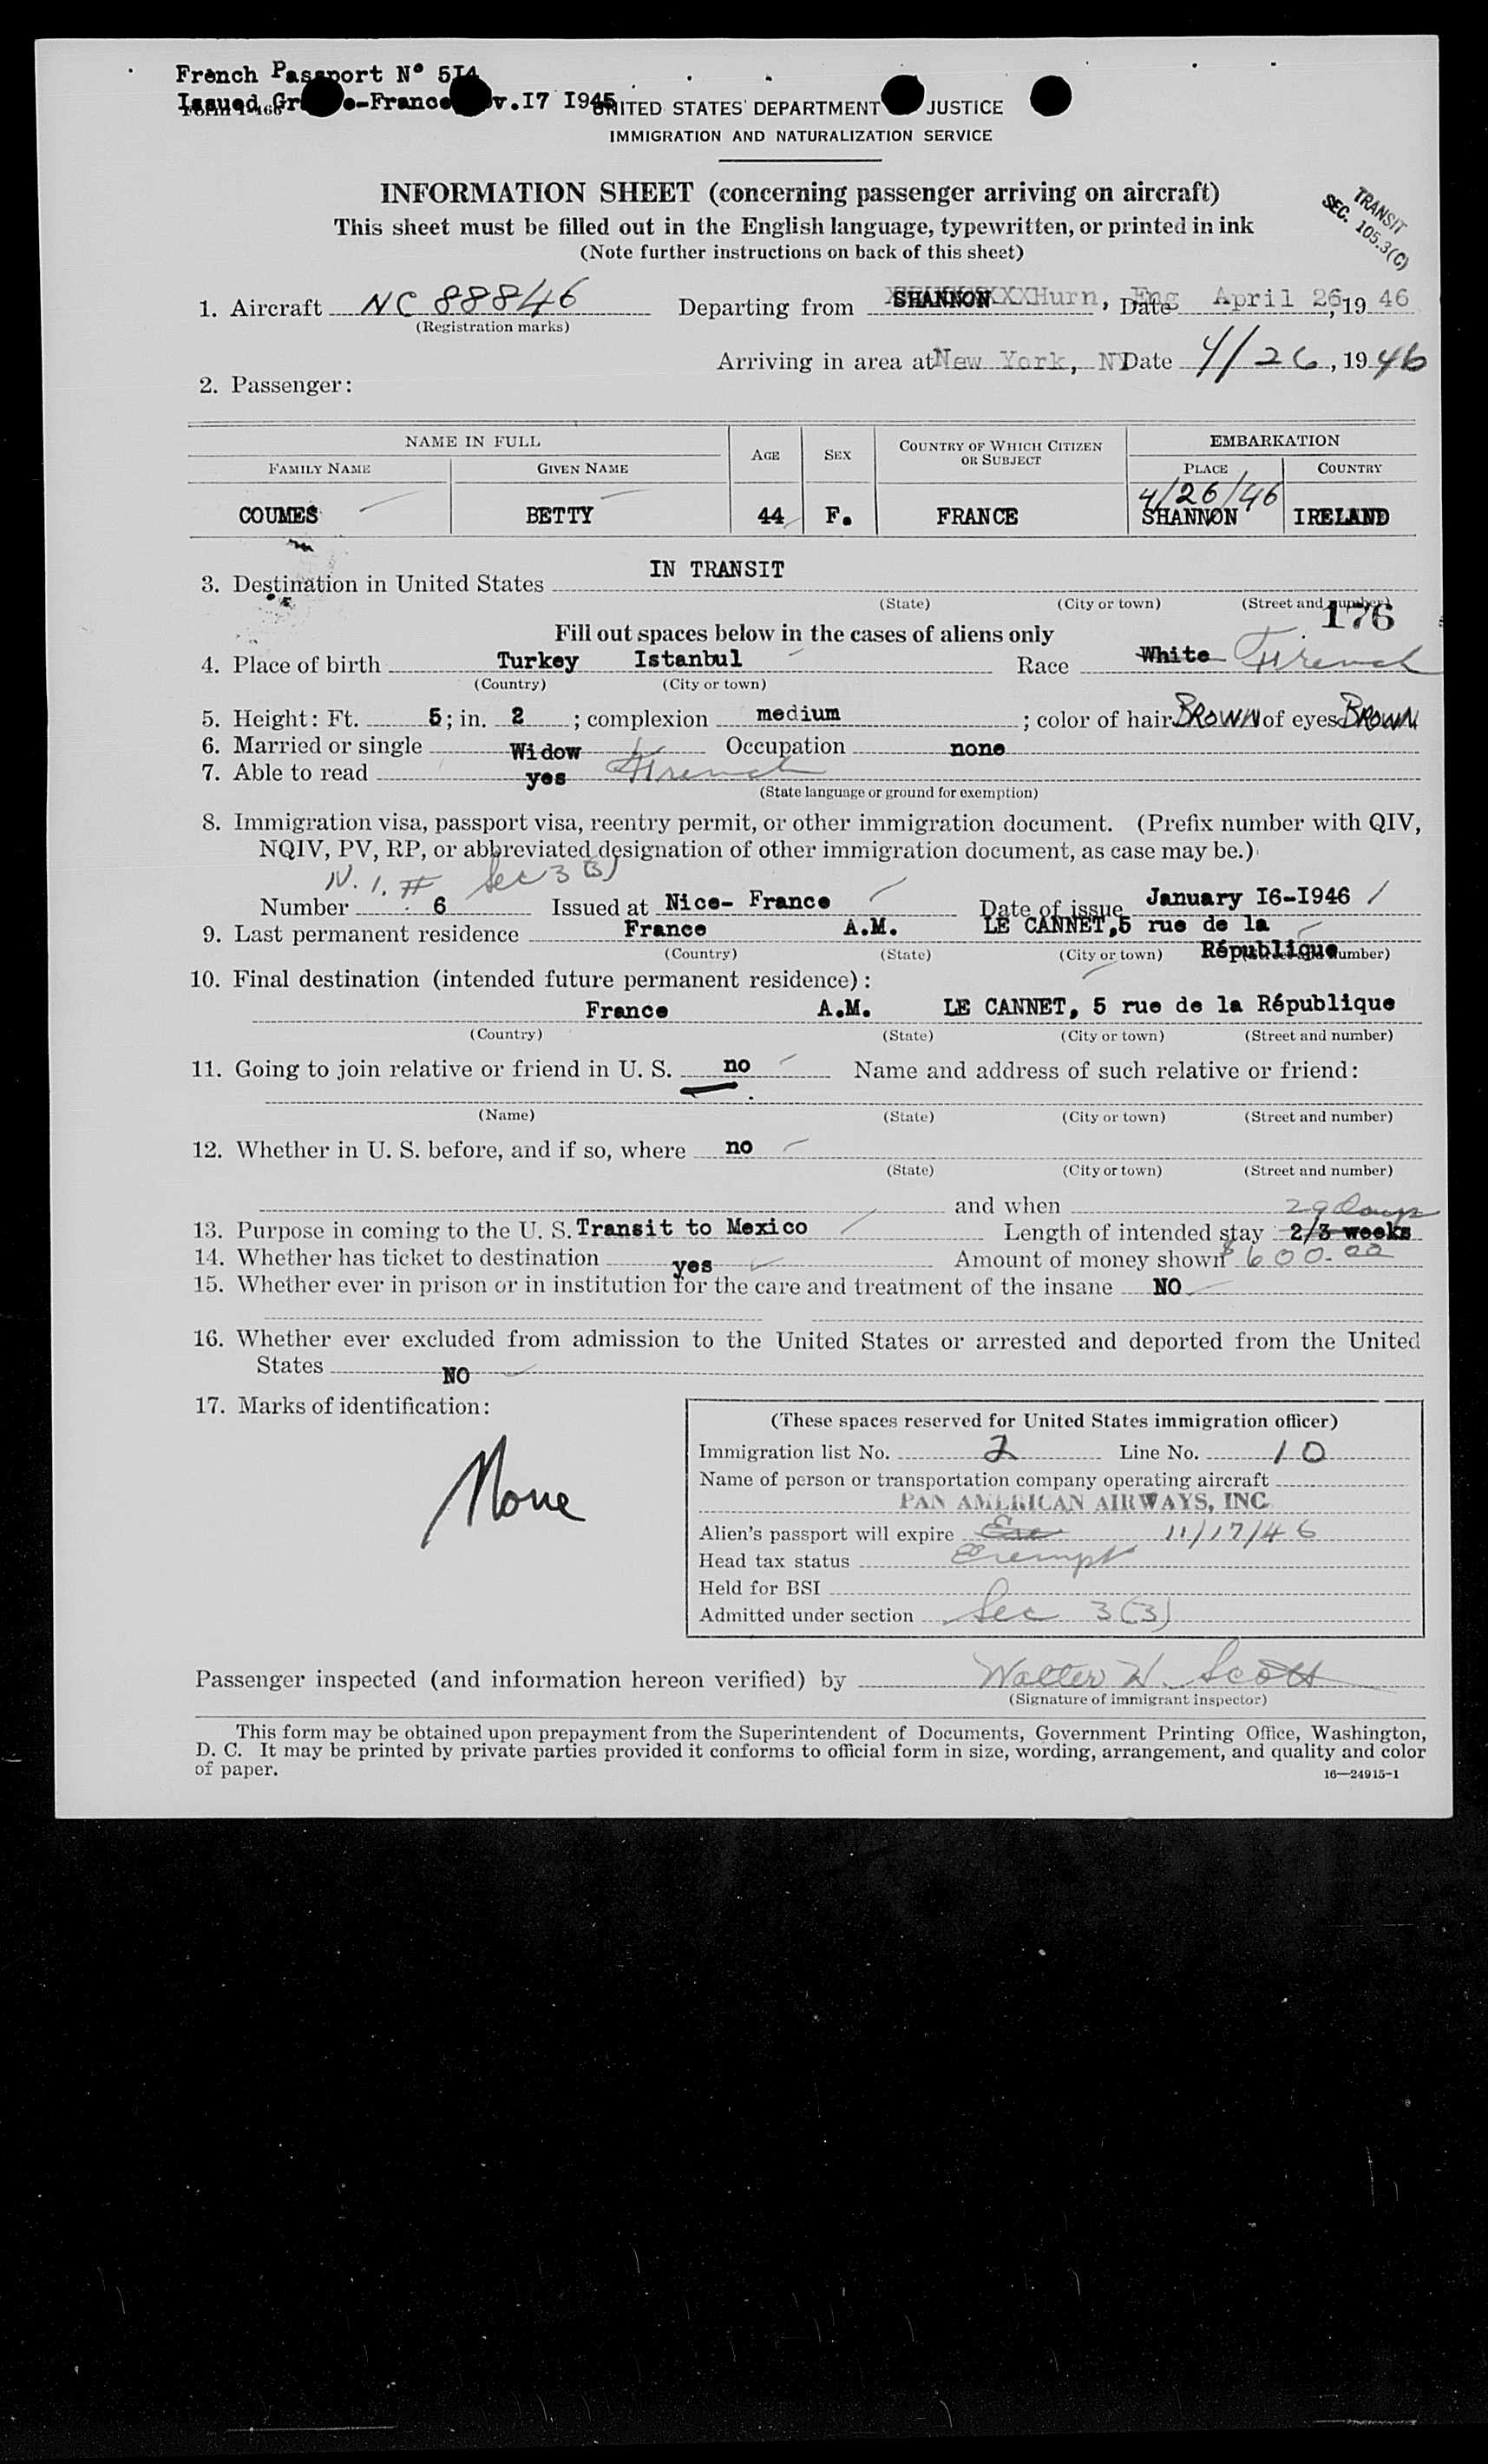 French Passport N° 5I4
Issued Gr e-France v.I7 I945
UNITED STATES DEPARTMENT JUSTICE
IMMIGRATION AND NATURALIZATION SERVICE
INFORMATION SHEET (concerning passenger arriving on aircraft)
This sheet must be filled out in the English language, typewritten, or printed in ink
(Note further instructions on back of this sheet)
TRANSIT
SEC. 105.3(C)
1. Aircraft NC 88846 Departing from SHANNON Hurn, Eng Date April 26, 19 46
(Registration marks)
Arriving in area at New York, NY Date 4/26, 19 46
2. Passenger:
NAME IN FULL AGE SEX COUNTRY OF WHICH CITIZEN OR SUBJECT EMBARKATION
FAMILY NAME GIVEN NAME PLACE COUNTRY
4/26/46
COUMES BETTY 44 F. FRANCE SHANNON IRELAND
3. Destination in United States IN TRANSIT
(State) (City or town) (Street and number)
176
Fill out spaces below in the cases of aliens only
4. Place of birth Turkey Istanbul Race White French
(Country) (City or town)
5. Height: Ft. 5; in. 2; complexion medium; color of hair BROWN of eyes BROWN
6. Married or single Widow Occupation none
7. Able to read yes French
(State language or ground for exemption)
8. Immigration visa, passport visa, reentry permit, or other immigration document. (Prefix number with QIV,
NQIV, PV, RP, or abbreviated designation of other immigration document, as case may be.)
N.I. # Sec 3 (3)
Number 6 Issued at Nice- France Date of issue January I6-I946
9. Last permanent residence France A.M. LE CANNET,5 rue de la
(Country) (State) (City or town) République (Street and number)
10. Final destination (intended future permanent residence):
France A.M. LE CANNET, 5 rue de la République
(Country) (State) (City or town) (Street and number)
11. Going to join relative or friend in U. S. no Name and address of such relative or friend:
(Name) (State) (City or town) (Street and number)
12. Whether in U. S. before, and if so, where no
(State) (City or town) (Street and number)
and when
29 Days
13. Purpose in coming to the U. S. Transit to Mexico Length of intended stay 2/3 weeks
14. Whether has ticket to destination yes Amount of money shown $600.00
15. Whether ever in prison or in institution for the care and treatment of the insane NO
16. Whether ever excluded from admission to the United States or arrested and deported from the United
States NO
17. Marks of identification:
None
(These spaces reserved for United States immigration officer)
Immigration list No. 2 Line No. 10
Name of person or transportation company operating aircraft
PAN AMERICAN AIRWAYS, INC.
Alien's passport will expire 11/17/46
Head tax status Exempt
Held for BSI
Admitted under section Sec 3(3)
Passenger inspected (and information hereon verified) by Walter H. Scott
(Signature of immigrant inspector)
This form may be obtained upon prepayment from the Superintendent of Documents, Government Printing Office, Washington,
D. C. It may be printed by private parties provided it conforms to official form in size, wording, arrangement, and quality and color
of paper.
16—24915-1